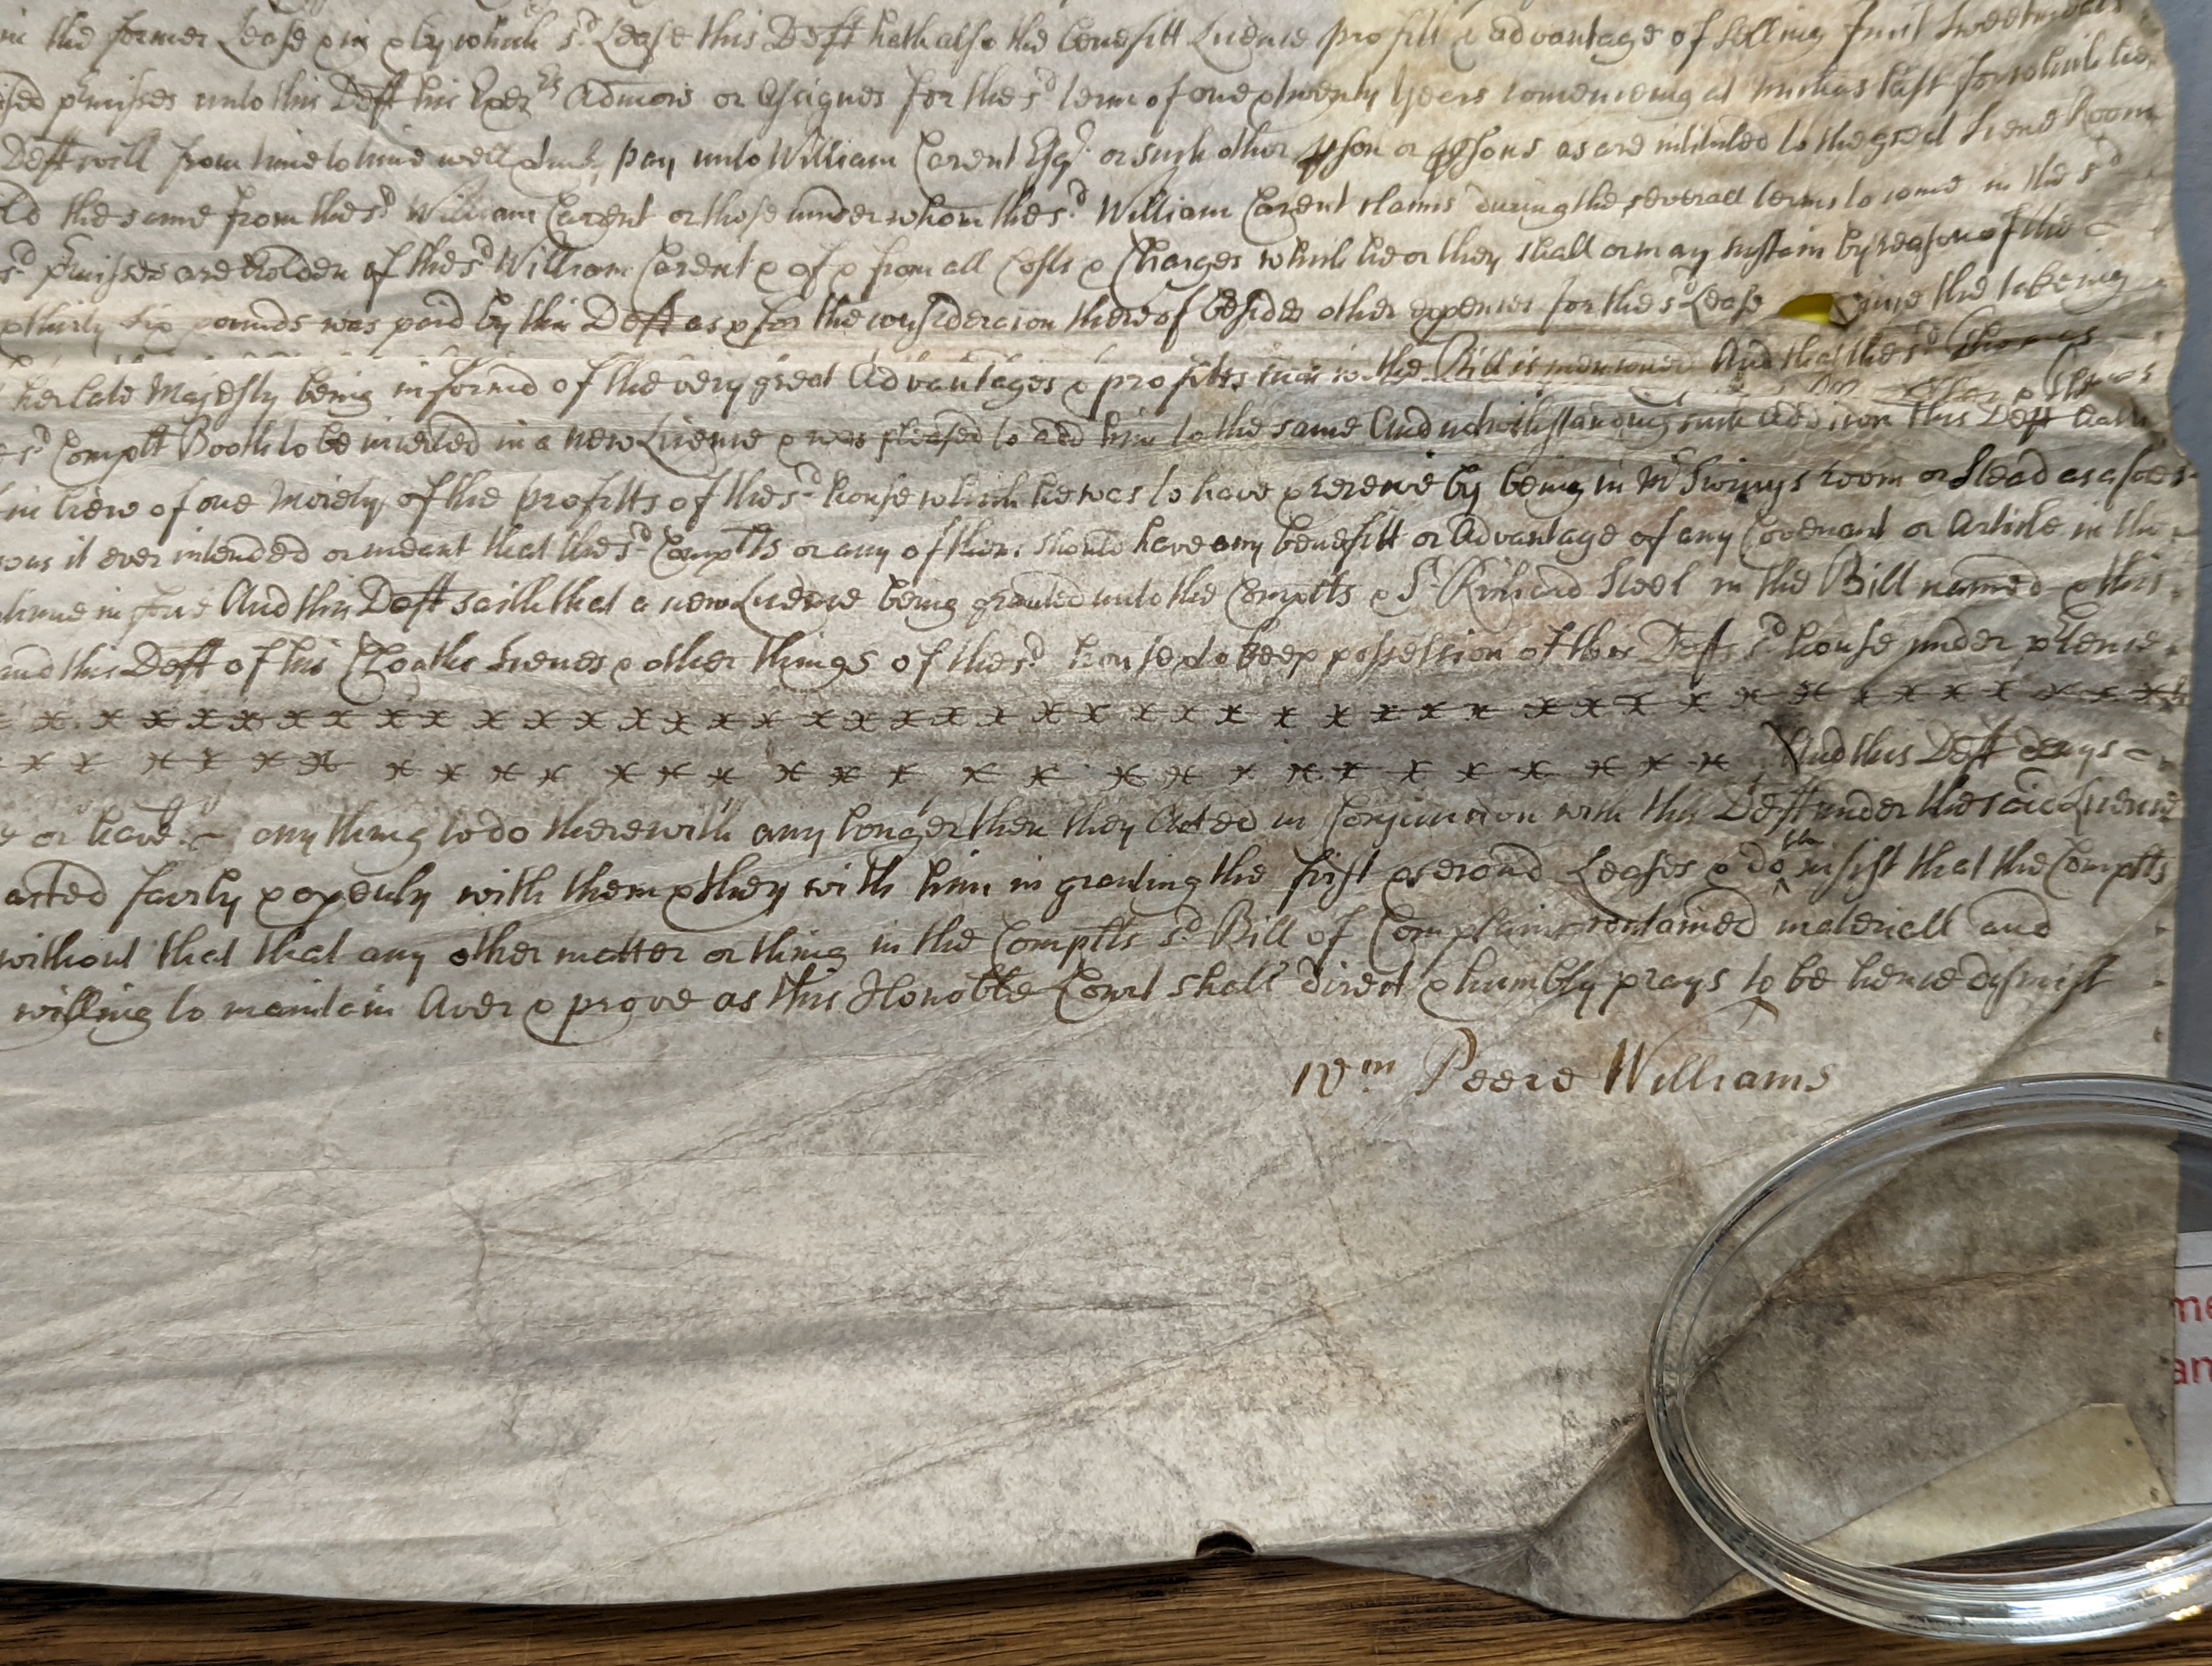 in the former Lease & in & by which sd. Lease this Deft hath also the benefitt Licence profitt & advantage of selling fruit Sweetmeats
sed p'misses unto this Deft his Exers Admors or Assignes for the sd. term of one & twenty years comencing at Michas last for which he
Deft will from time to time well & truly pay unto William Carent Esqr. or such other pson or psons as are intituled to the great Scene Room
the same from the sd. William Carent or those under whom the sd. William Carent claims during the severall terms to come in the sd
sd. p'misses are holden of the sd William Carent & of & from all Costs & Charges which he or they shall or may sustain by reason of the
& thirty six pounds was paid by this Deft as & for the consideracion thereof besides other expences for the sd Lease Since the takeing
her late Majesty being informed of the very great Advantages & profitts in the Bill is menconed And that the sd. Thomas
sd. Complt Booth to be incerted in a new Licence & was pleased to add him to the same And notwithstanding such addicon this Deft
in liew of one Moiety of the profitts of the sd. house which he was to have & receive by being in Mr Swinys room or Stead as afores
was it ever intended or meant that the sd. Complts or any of them should have any benefitt or Advantage of any Covenant or Article in the
And this Deft saith that a new Licence being granted unto the Complts & Sr. Richard Steel in the Bill named & this
and this Deft of his Cloaths Scenes & other things of the sd. house & to keep possession of this Defts sd house under p'tence
x x x x x x x x x x x x x x x x x x x x x x x x x x x x x x x x x x x x x x x x x x
x x x x x x x x x x x x x x x x x x x x x x x x x x x x x And this Deft denys
or have any thing to do therewith any longer then they Acted in Conjunction with this Deft under the said Licence
acted fairly & openly with them & they with him in granting the first & second Leases & do insist that the Complts
without that that any other matter or thing in the Complts sd. Bill of Complaint contained materiall and
willing to maintain Aver & prove as this Honoble Court shall direct & humbly prays to be hence dismist
Wm Peere Williams